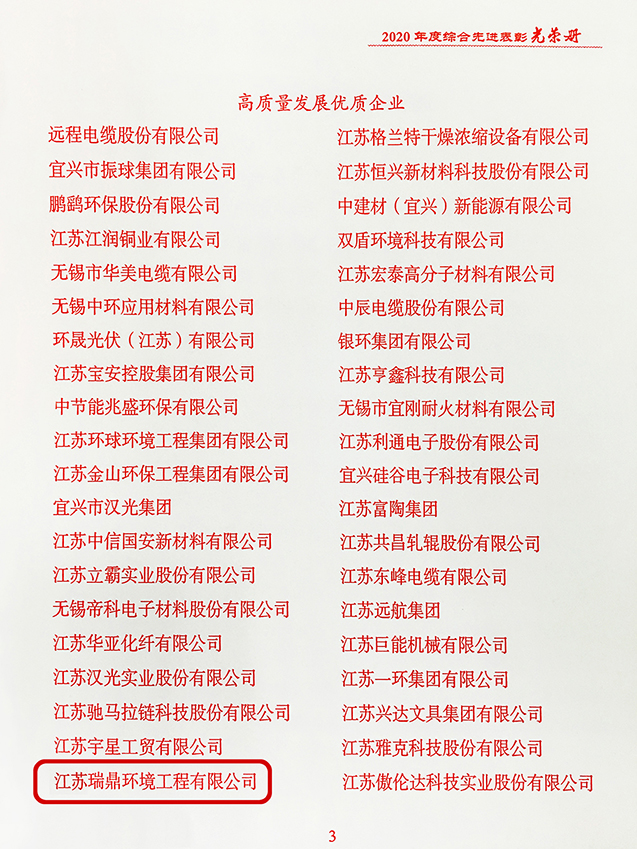 2020年度综合先进表彰光荣册
高质量发展优质企业
远程电缆股份有限公司
宜兴市振球集团有限公司
鹏鹞环保股份有限公司
江苏江润铜业有限公司
无锡市华美电缆有限公司
无锡中环应用材料有限公司
环晟光伏（江苏）有限公司
江苏宝安控股集团有限公司
中节能兆盛环保有限公司
江苏环球环境工程集团有限公司
江苏金山环保工程集团有限公司
宜兴市汉光集团
江苏中信国安新材料有限公司
江苏立霸实业股份有限公司
无锡帝科电子材料股份有限公司
江苏华亚化纤有限公司
江苏汉光实业股份有限公司
江苏驰马拉链科技股份有限公司
江苏宇星工贸有限公司
江苏瑞鼎环境工程有限公司
江苏格兰特干燥浓缩设备有限公司
江苏恒兴新材料科技股份有限公司
中建材（宜兴）新能源有限公司
双盾环境科技有限公司
江苏宏泰高分子材料有限公司
中辰电缆股份有限公司
银环集团有限公司
江苏亨鑫科技有限公司
无锡市宜刚耐火材料有限公司
江苏利通电子股份有限公司
宜兴硅谷电子科技有限公司
江苏富陶集团
江苏共昌轧辊股份有限公司
江苏东峰电缆有限公司
江苏远航集团
江苏巨能机械有限公司
江苏一环集团有限公司
江苏兴达文具集团有限公司
江苏雅克科技股份有限公司
江苏傲伦达科技实业股份有限公司
3